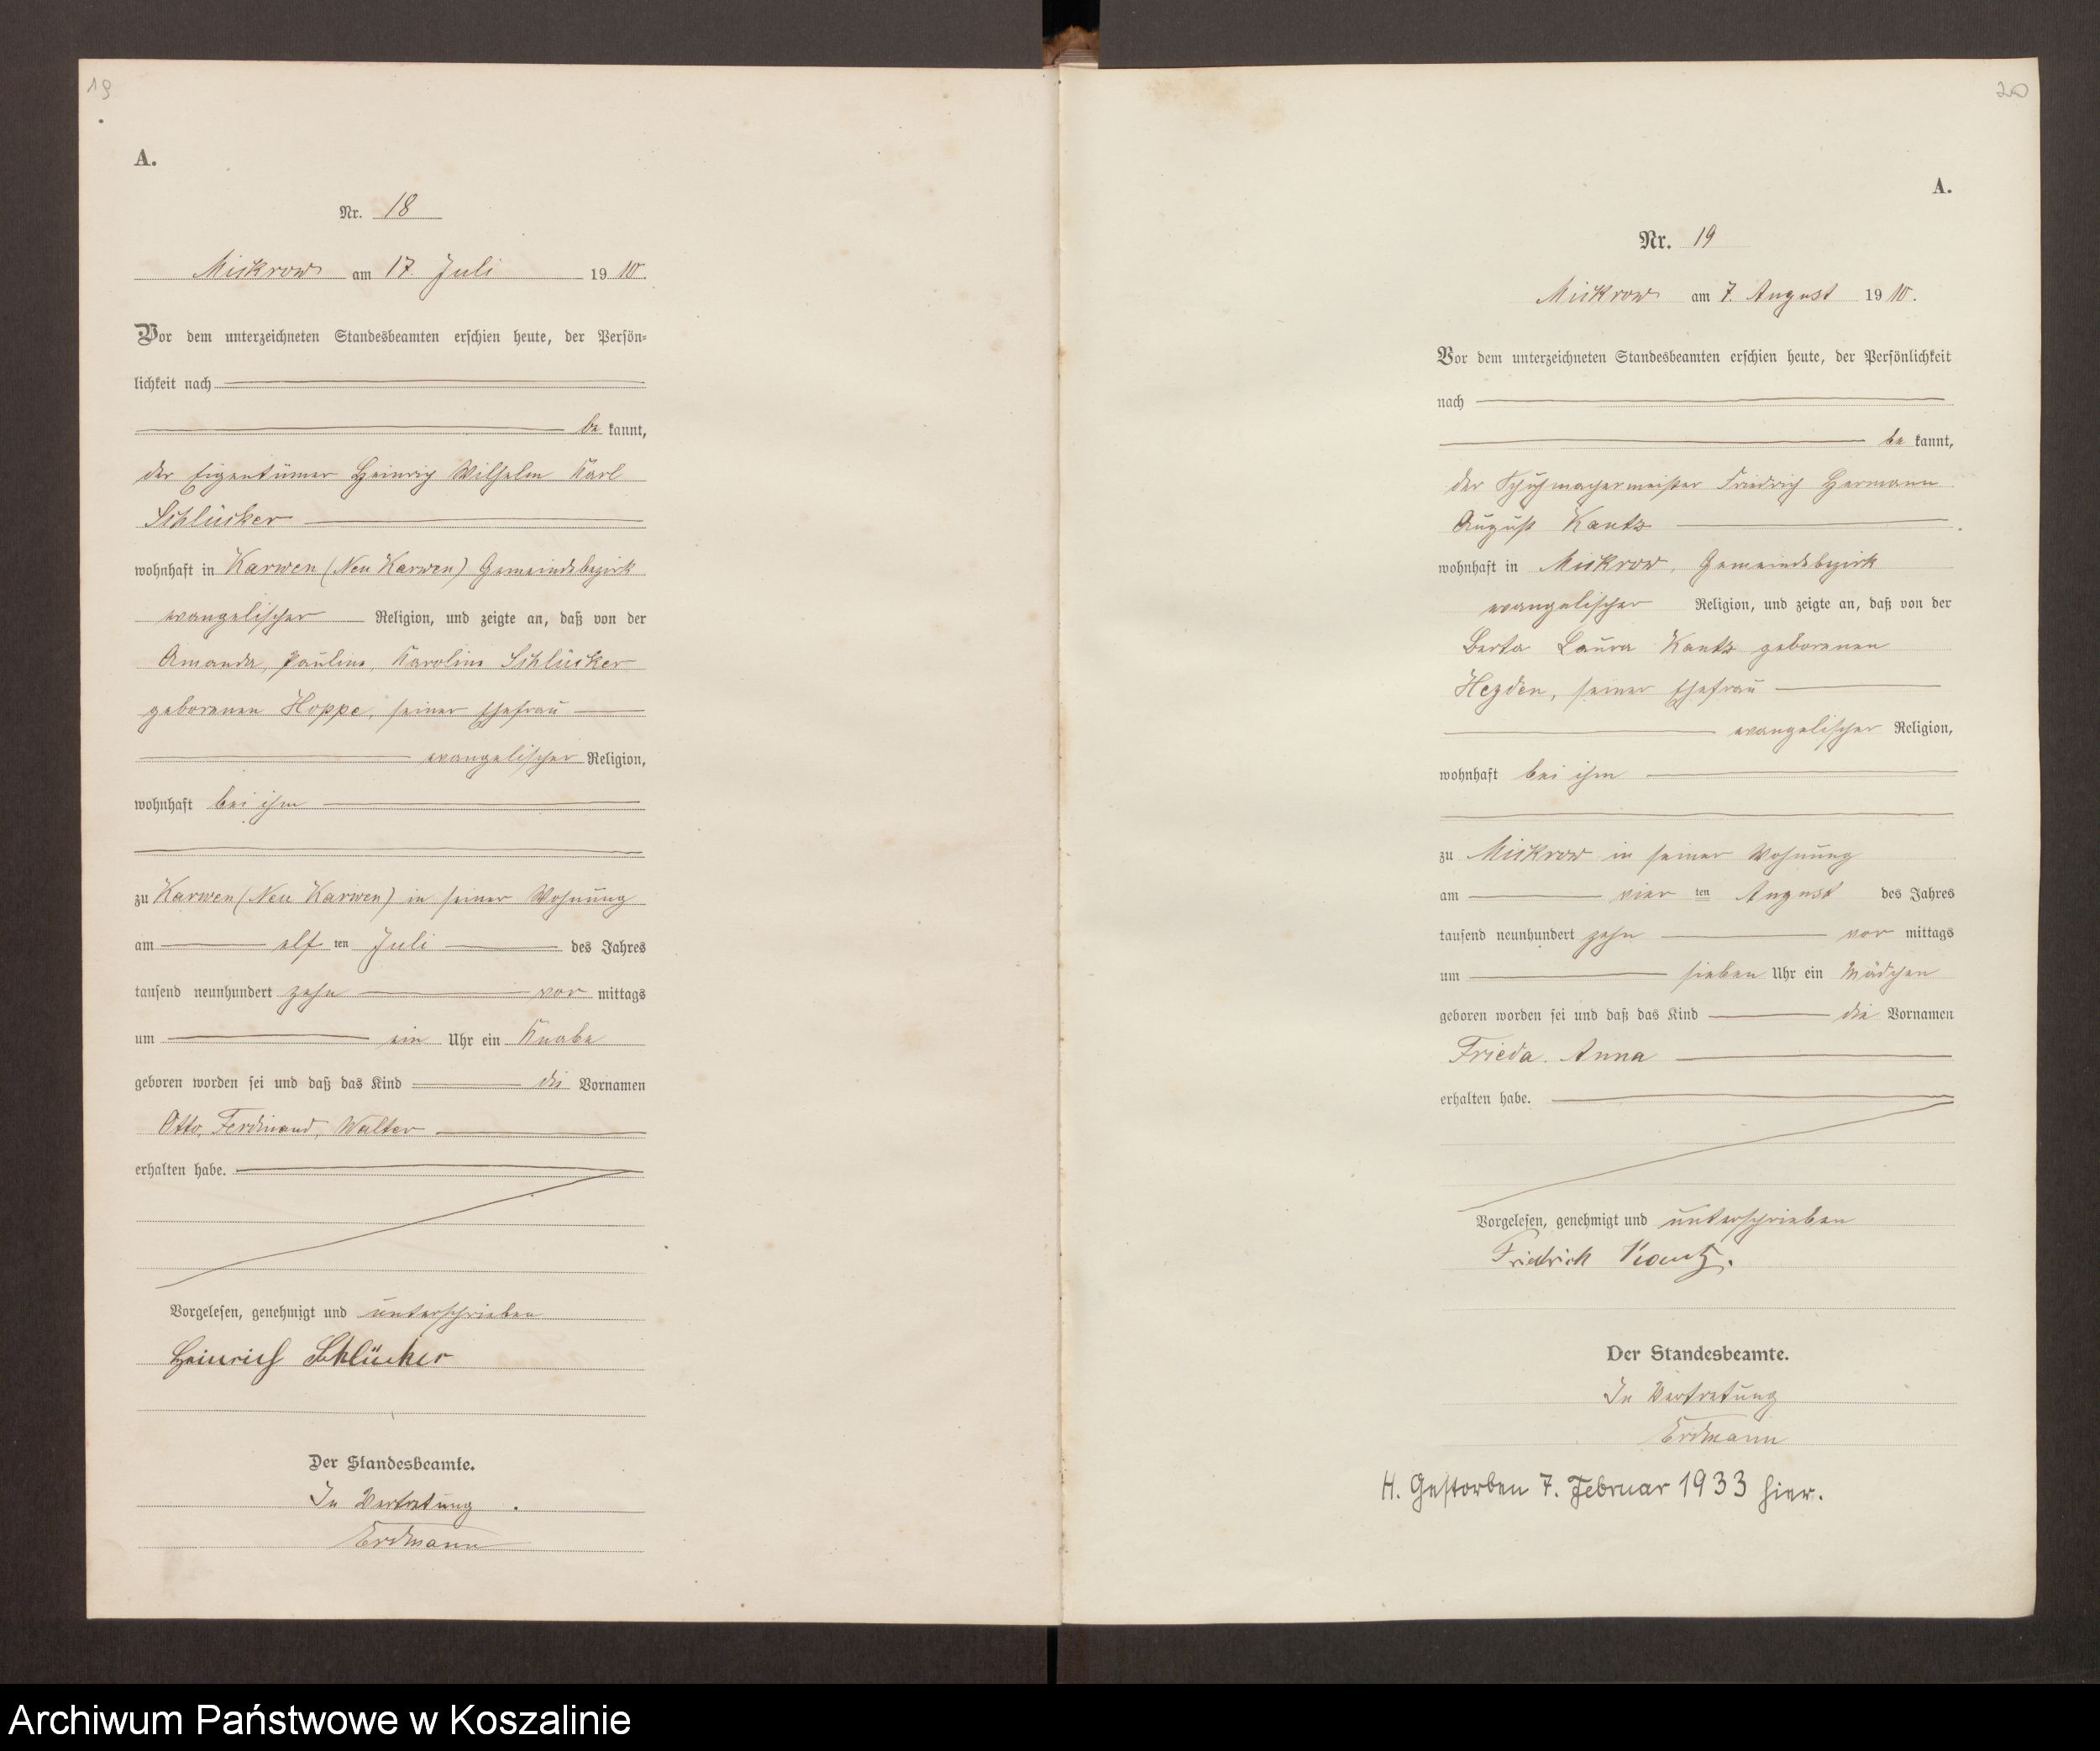 19
A.
Nr. 18
Mickrow am 17. Juli 1910.
Vor dem unterzeichneten Standesbeamten erschien heute, der Persön-
lichkeit nach
be kannt,
der Eigentümer Heinrich Wilhelm Karl
Schlücker
wohnhaft in Karwen (Neu Karwen) Gemeindebezirk
evangelischer Religion, und zeigte an, daß von der
Amanda, Pauline, Karoline Schlücker
geborenen Hoppe, seiner Ehefrau
evangelischer Religion,
wohnhaft bei ihm
zu Karwen (Neu Karwen) in seiner Wohnung
am elf ten Juli des Jahres
tausend neunhundert zehn vor mittags
um ein Uhr ein Knabe
geboren worden sei und daß das Kind die Vornamen
Otto, Ferdinand, Walter
erhalten habe.
Vorgelesen, genehmigt und unterschrieben
Heinrich Schlücker
Der Standesbeamte.
In Vertretung
Erdmann
20
A.
Nr. 19
Mickrow am 7. August 1910.
Vor dem unterzeichneten Standesbeamten erschien heute, der Persönlichkeit
nach
be kannt,
der Schuhmachermeister Friedrich Hermann
August Kautz
wohnhaft in Mickrow, Gemeindebezirk
evangelischer Religion, und zeigte an, daß von der
Berta Laura Kautz geborenen
Heyden, seiner Ehefrau
evangelischer Religion,
wohnhaft bei ihm
zu Mickrow in seiner Wohnung
am vier ten August des Jahres
tausend neunhundert zehn vor mittags
um sieben Uhr ein Mädchen
geboren worden sei und daß das Kind die Vornamen
Frieda Anna
erhalten habe.
Vorgelesen, genehmigt und unterschrieben
Friedrich Kautz.
Der Standesbeamte.
In Vertretung
Erdmann
H. Gestorben 7. Februar 1933 hier.
Archiwum Państwowe w Koszalinie